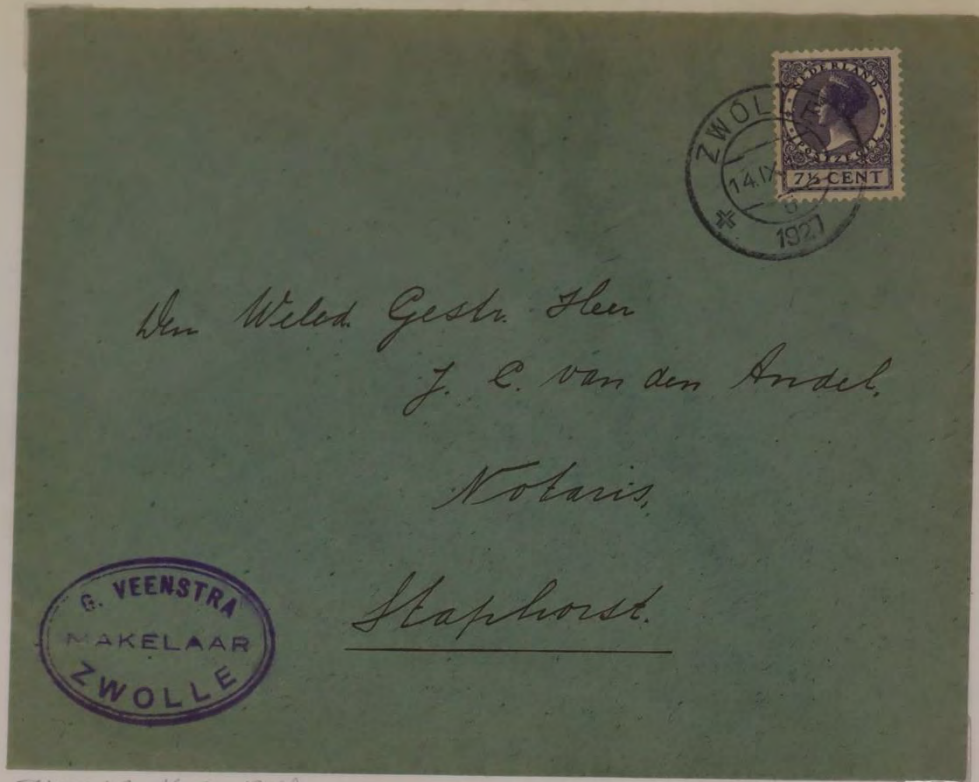 NEDERLAND
POSTZEGEL
7½ CENT
ZWOLLE
14.IX
1927
Den Weled. Gestr. Heer
J. C. van den Andel.
Notaris.
Staphorst.
G. VEENSTRA
MAKELAAR
ZWOLLE